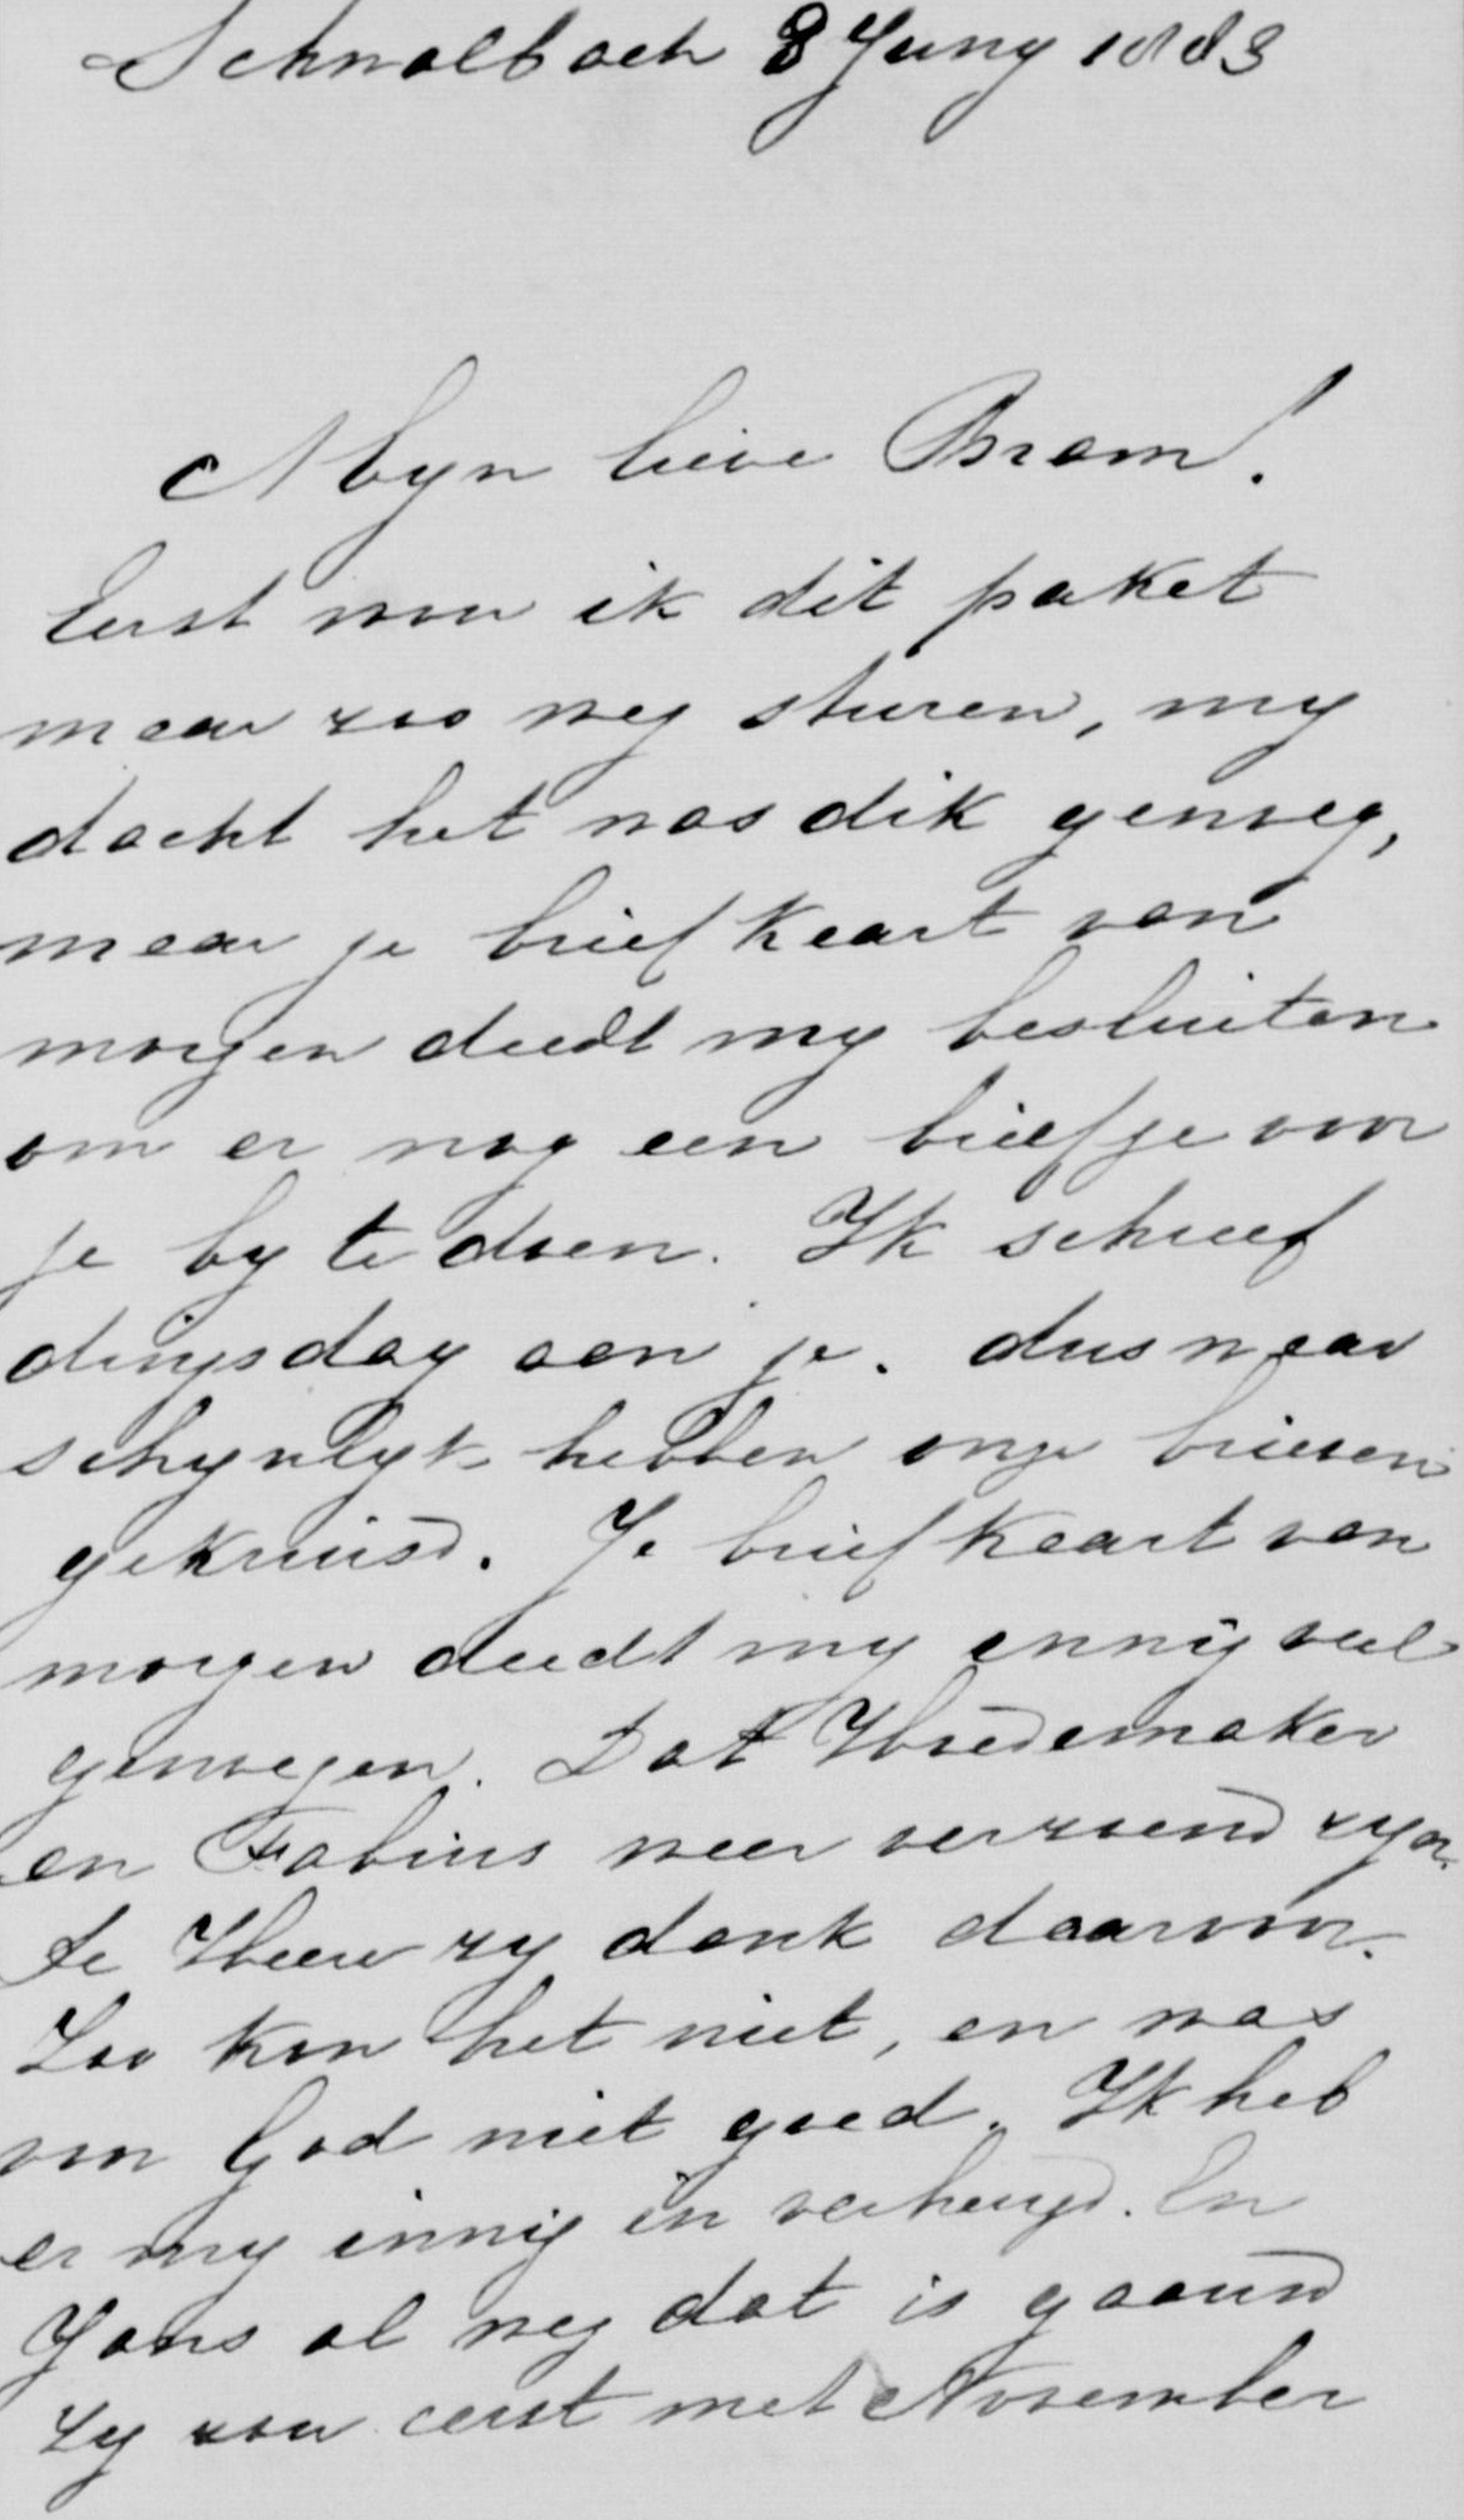 Schwalbach 8 Juny 1883
Myn lieve Bram!
Eerst wou ik dit paket
maar zoo weg sturen, my
dacht het was dik genoeg,
maar je briefkaart van
morgen deedt my besluiten
om er nog een briefje voor
je by te doen. Ik schreef
dingsdag aan je. dus waar
schynlyk hebben onze brieven
gekruisd. Je briefkaart van
morgen deedt my innig veel
genoegen. Dat Hoedemaker
en Fabius weer verzoend zyn.
de Heere zy dank daarvoor.
Zoo kon het niet, en was
voor God niet goed. Ik heb
er my innig in verheugd. En
Jans al weg dat is gaauw
zy zou eerst met November